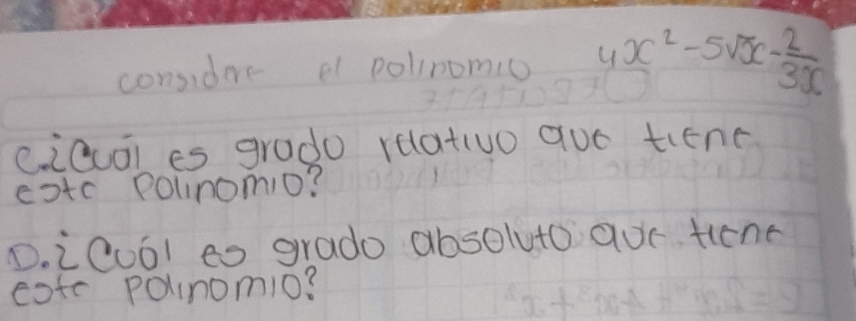 considere el polinomio 4x² - 5√x - 2/3x
C. ¿Cuál es grado relativo que tiene
este polinomio?
D. ¿Cuál es grado absoluto que tiene
este polinomio?